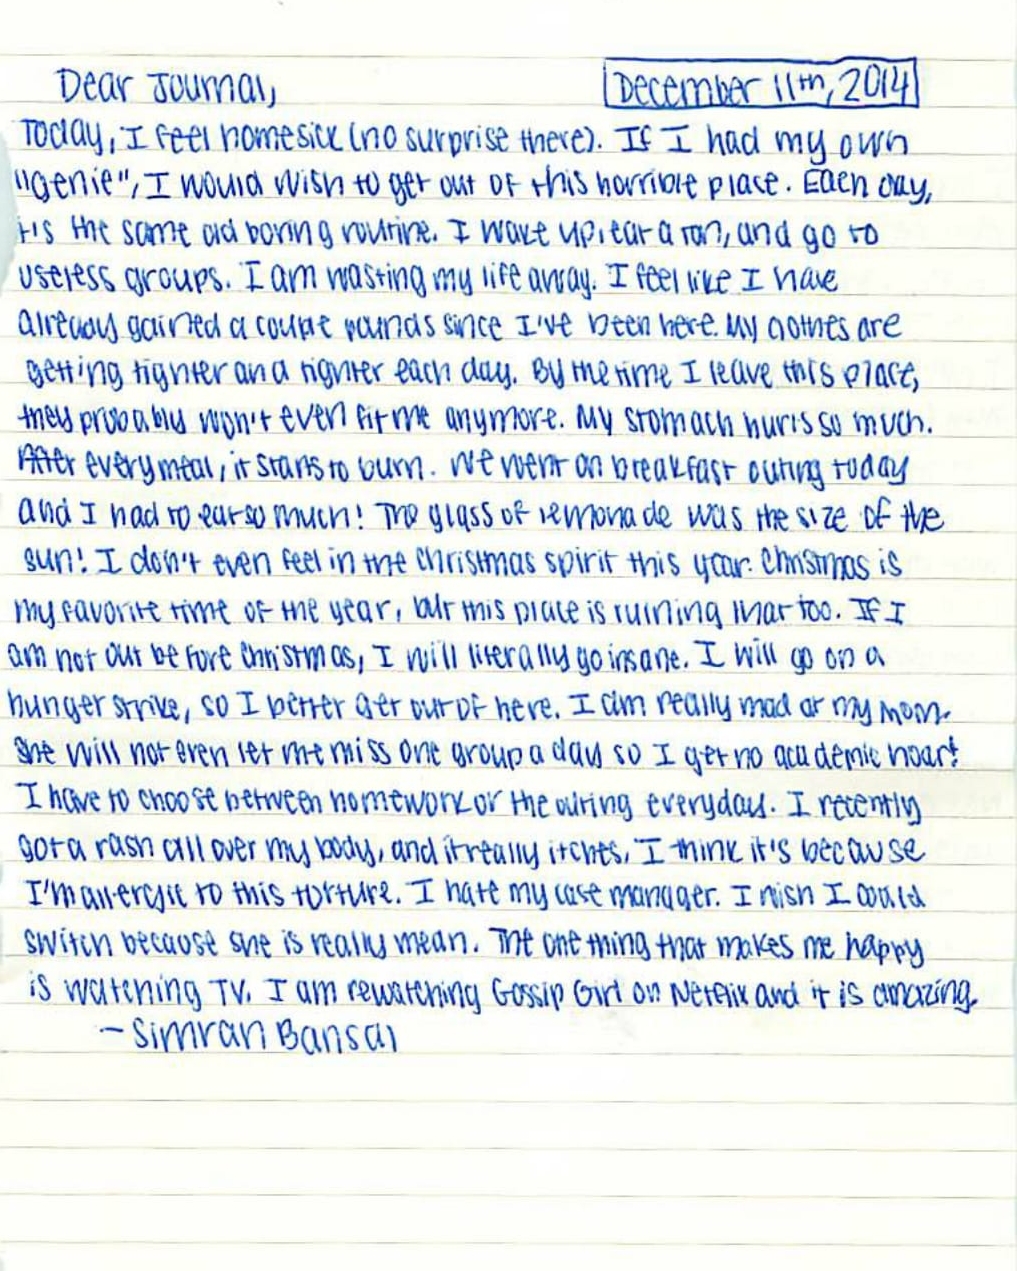 Dear Journal,
December 11th, 2014
Today, I feel homesick (no surprise there). If I had my own
"genie", I would wish to get out of this horrible place. Each day,
it's the same old boring routine. I wake up, eat a ton, and go to
useless groups. I am wasting my life away. I feel like I have
already gained a couple pounds since I've been here. My clothes are
getting tighter and tighter each day. By the time I leave this place,
they probably won't even fit me anymore. My stomach hurts so much.
After every meal, it starts to burn. We went on breakfast outing today
and I had to eat so much! The glass of lemonade was the size of the
sun! I don't even feel in the Christmas spirit this year. Christmas is
my favorite time of the year, but this place is ruining that too. If I
am not out before Christmas, I will literally go insane. I will go on a
hunger strike, so I better get out of here. I am really mad at my mom.
She will not even let me miss one group a day so I get no academic hour!
I have to choose between homework or the outing everyday. I recently
got a rash all over my body, and it really itches. I think it's because
I'm allergic to this torture. I hate my case manager. I wish I could
switch because she is really mean. The one thing that makes me happy
is watching TV. I am rewatching Gossip Girl on Netflix and it is amazing.
- Simran Bansal